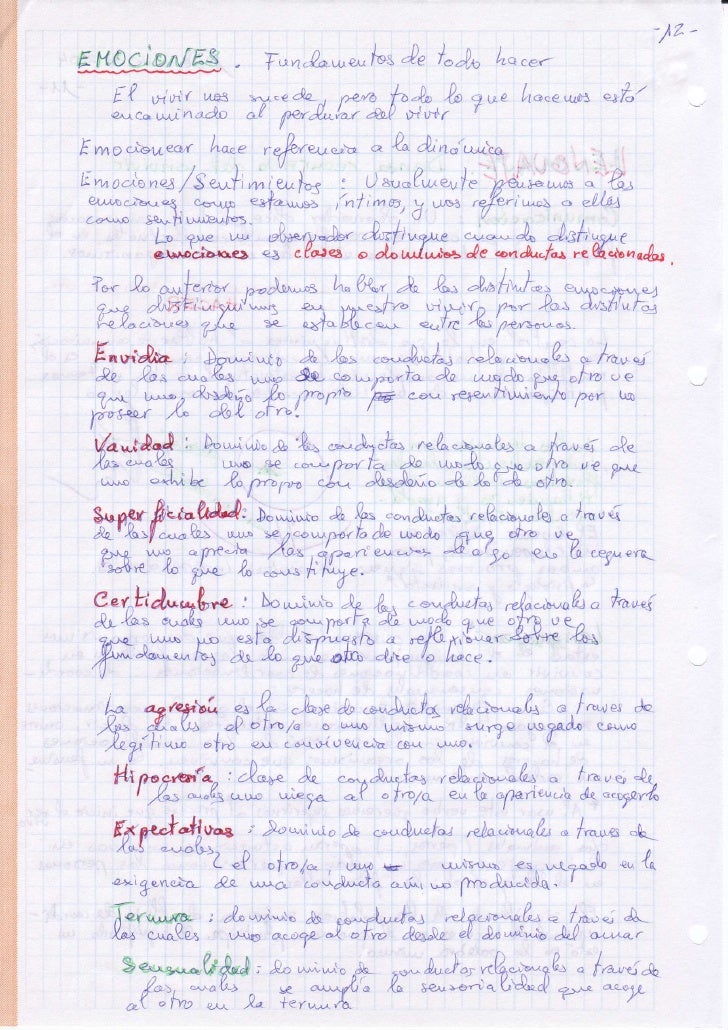 -12-
EMOCIONES. Fundamentos de todo hacer
El vivir nos sucede, pero todo lo que hacemos está
encaminado al perdurar del vivir
Emocionear hace referencia a la dinámica
Emociones/Sentimientos : Usualmente pensamos a las
emociones como estamos íntimos, y nos referimos a ellas
como sentimientos.
Lo que un observador distingue cuando distingue
emociones es clases o dominios de conductas relacionadas.
Por lo anterior podemos hablar de las distintas emociones
que distinguimos en nuestro vivir por las distintas
relaciones que se establecen entre las personas.
Envidia : Dominio de las conductas relacionales a través
de las cuales uno se comporta de modo que otro ve
que uno, desdeña lo propio con resentimiento por no
poseer lo del otro.
Vanidad : Dominio de las conductas relacionales a través de
las cuales uno se comporta de modo que otro ve que
uno exhibe lo propio con desdeño de lo de otro.
Superficialidad. Dominio de las conductas relacionales a través
de las cuales uno se comporta de modo que otro ve
que uno aprecia las apariencias de algo en la ceguera
sobre lo que lo constituye.
Certidumbre : Dominio de las conductas relacionales a través
de las cuales uno se comporta de modo que otro ve
que uno no está dispuesto a reflexionar sobre los
fundamentos de lo que otro dice o hace.
La agresión es la clase de conductas relacionales a traves de
las cuales el otro/a o uno mismo surge negado como
legítimo otro en convivencia con uno.
Hipocresía : clase de conductas relacionales a traves de
las cuales uno niega al otro/a en la apariencia de acogerlo
Expectativas : dominio de conductas relacionales a traves de
las cuales,
el otro/a, uno mismo es negado en la
exigencia de una conducta aún no producida.
Ternura : dominio de conductas relacionales a través de
las cuales uno acoge al otro desde el dominio del amar
Sensualidad : dominio de conductas relacionales a través de
las cuales se amplía la sensorialidad que acoge
al otro en la ternura